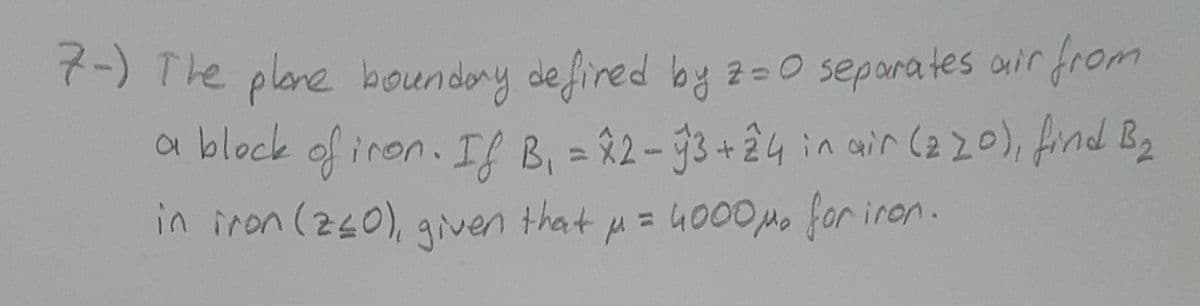 7-) The plane boundary defined by z=0 separates air from
a block of iron. If B₁ = x̂2 - ŷ3 + ẑ4 in air (z≥0), find B₂
in iron (z≤0), given that μ = 4000μ₀ for iron.